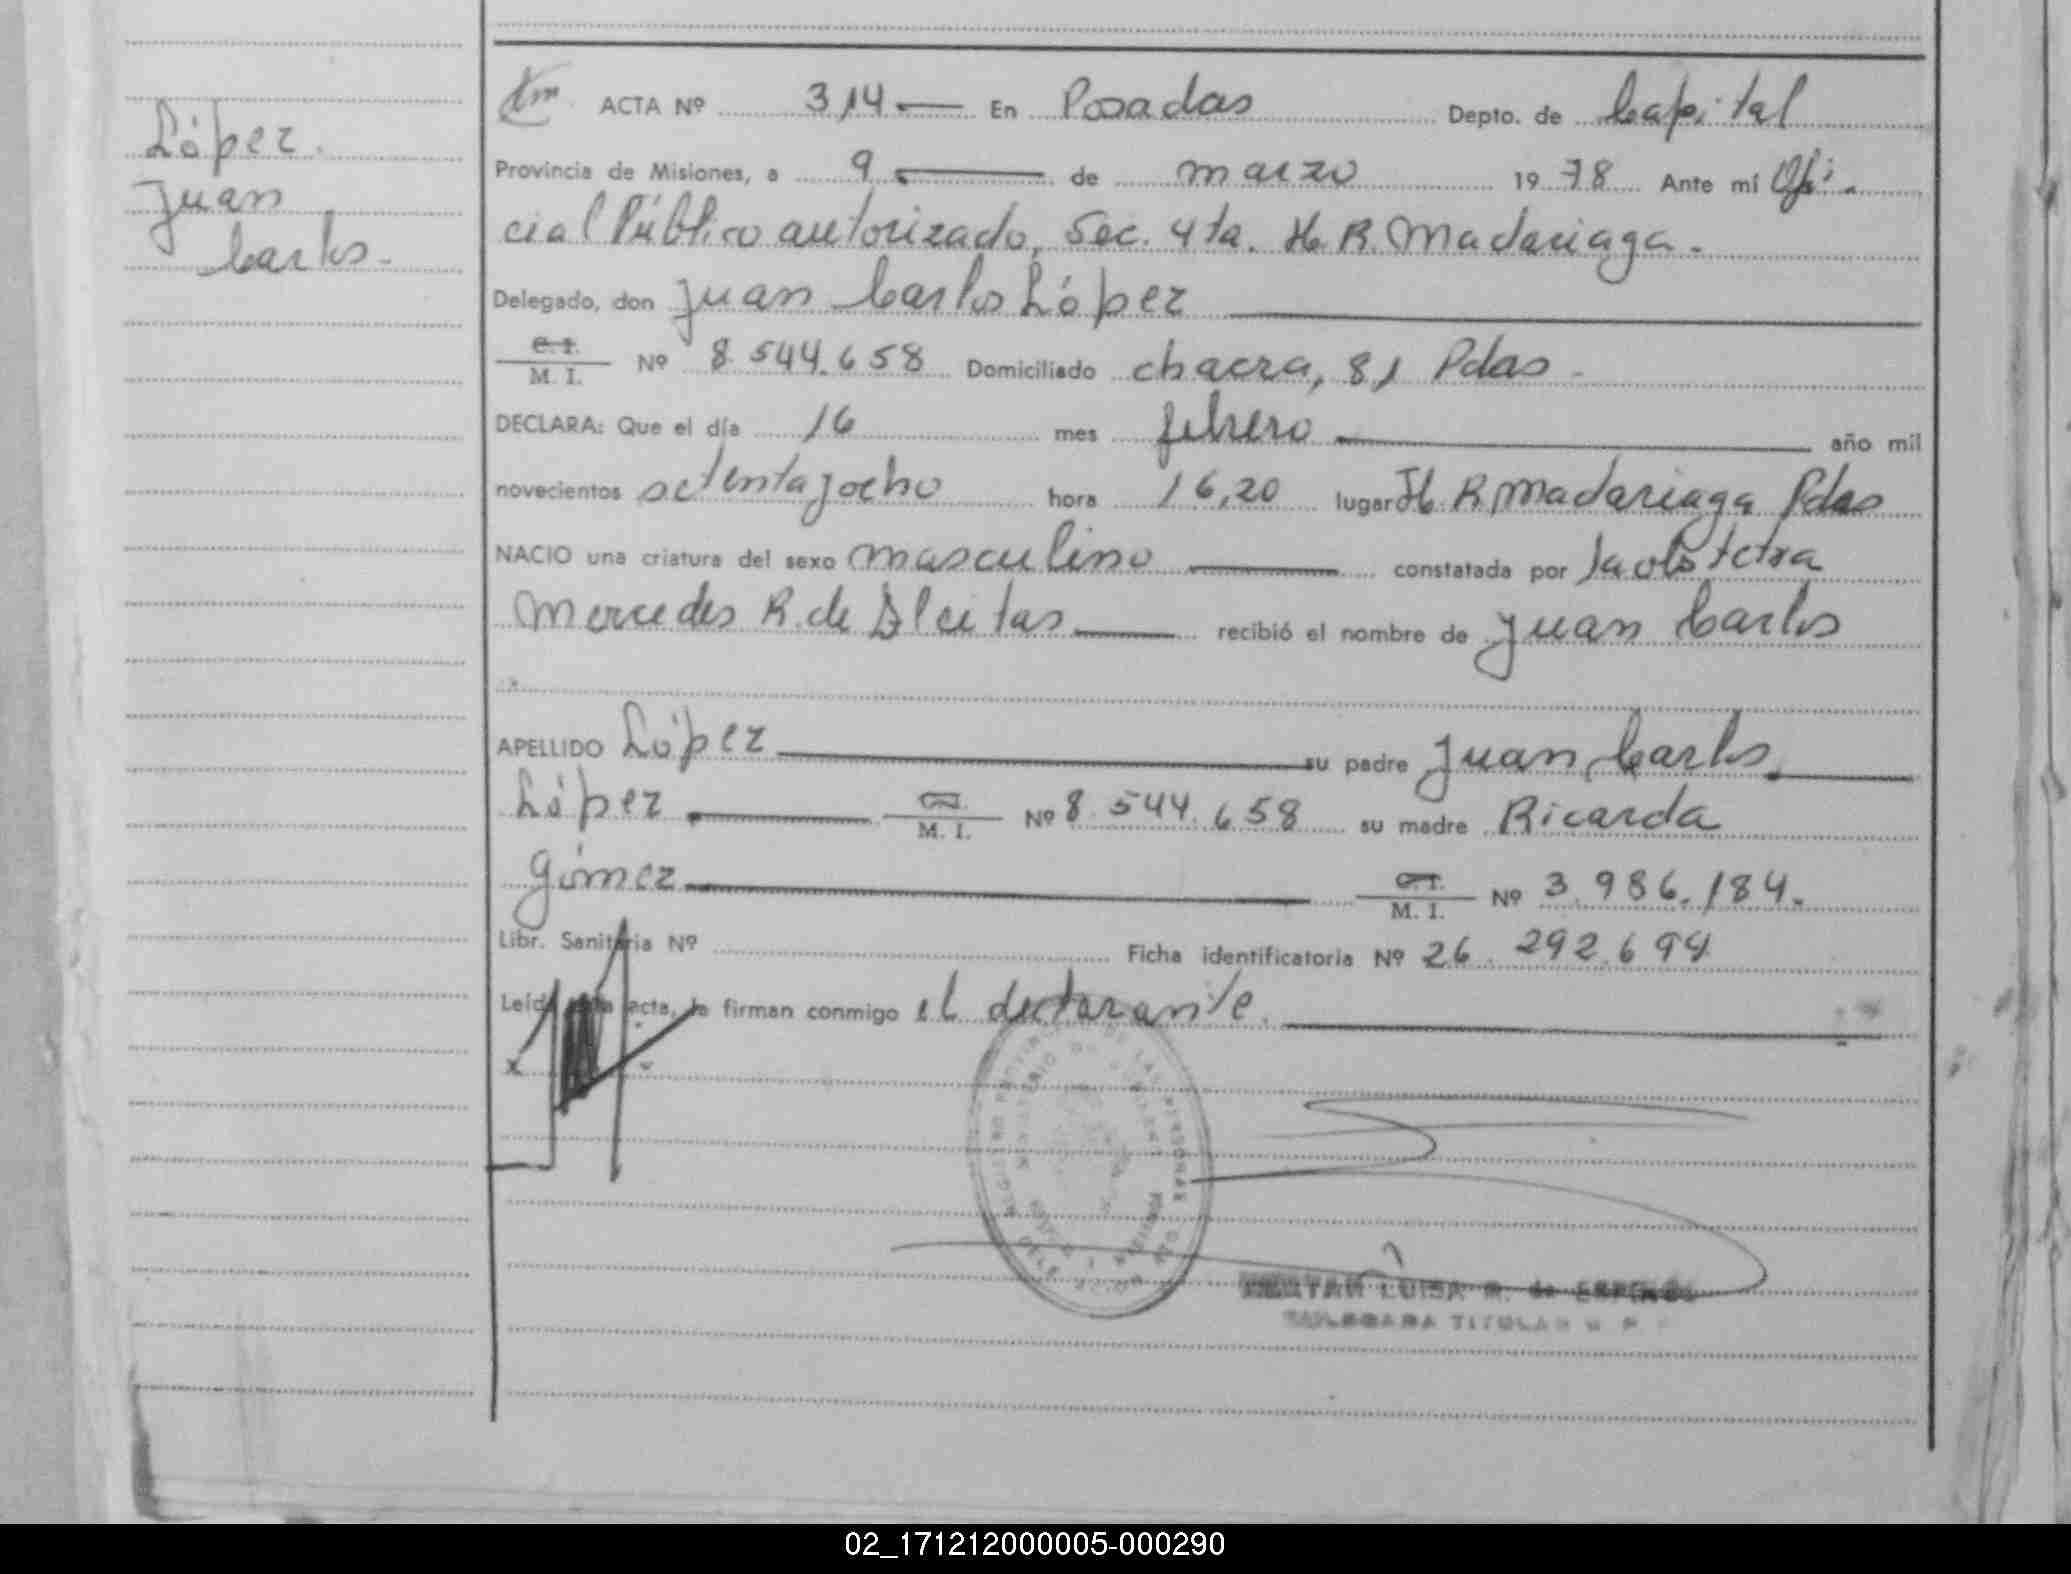 López.
Juan
Carlos.
ACTA Nº 314 En Posadas Depto. de Capital
Provincia de Misiones, a 9 de marzo 1978 Ante mí Ofi-
cial Público autorizado, Sec. 4ta. H. R. Madariaga.
Delegado, don Juan Carlos López
C. I.
M. I. Nº 8.544.658 Domiciliado chacra, 81 Pdas.
DECLARA: Que el día 16 mes febrero año mil
novecientos setentayocho hora 16,20 lugar H. R. Madariaga Pdas
NACIO una criatura del sexo masculino constatada por la obstetra
Mercedes R. de recibió el nombre de Juan Carlos
APELLIDO López su padre Juan Carlos
López M. I. Nº 8.544.658 su madre Ricarda
Gómez C. I.
M. I. Nº 3.986.184.
Libr. Sanitaria Nº Ficha identificatoria Nº 26.292.694
Leída esta acta, la firman conmigo el declarante.
LUISA R. de
TITULAR
02_171212000005-000290